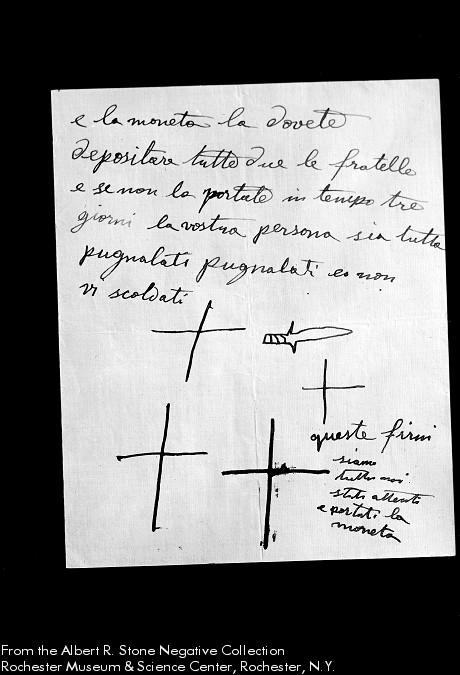 e la moneta la dovete
depositare tutto due le fratelle
e se non la portate in tempo tre
giorni la vostra persona sia tutta
pugnalati pugnalati e non
vi scoldati
queste firmi
siamo
tutti noi
stati attenti
e portati la
moneta
From the Albert R. Stone Negative Collection
Rochester Museum & Science Center, Rochester, N.Y.